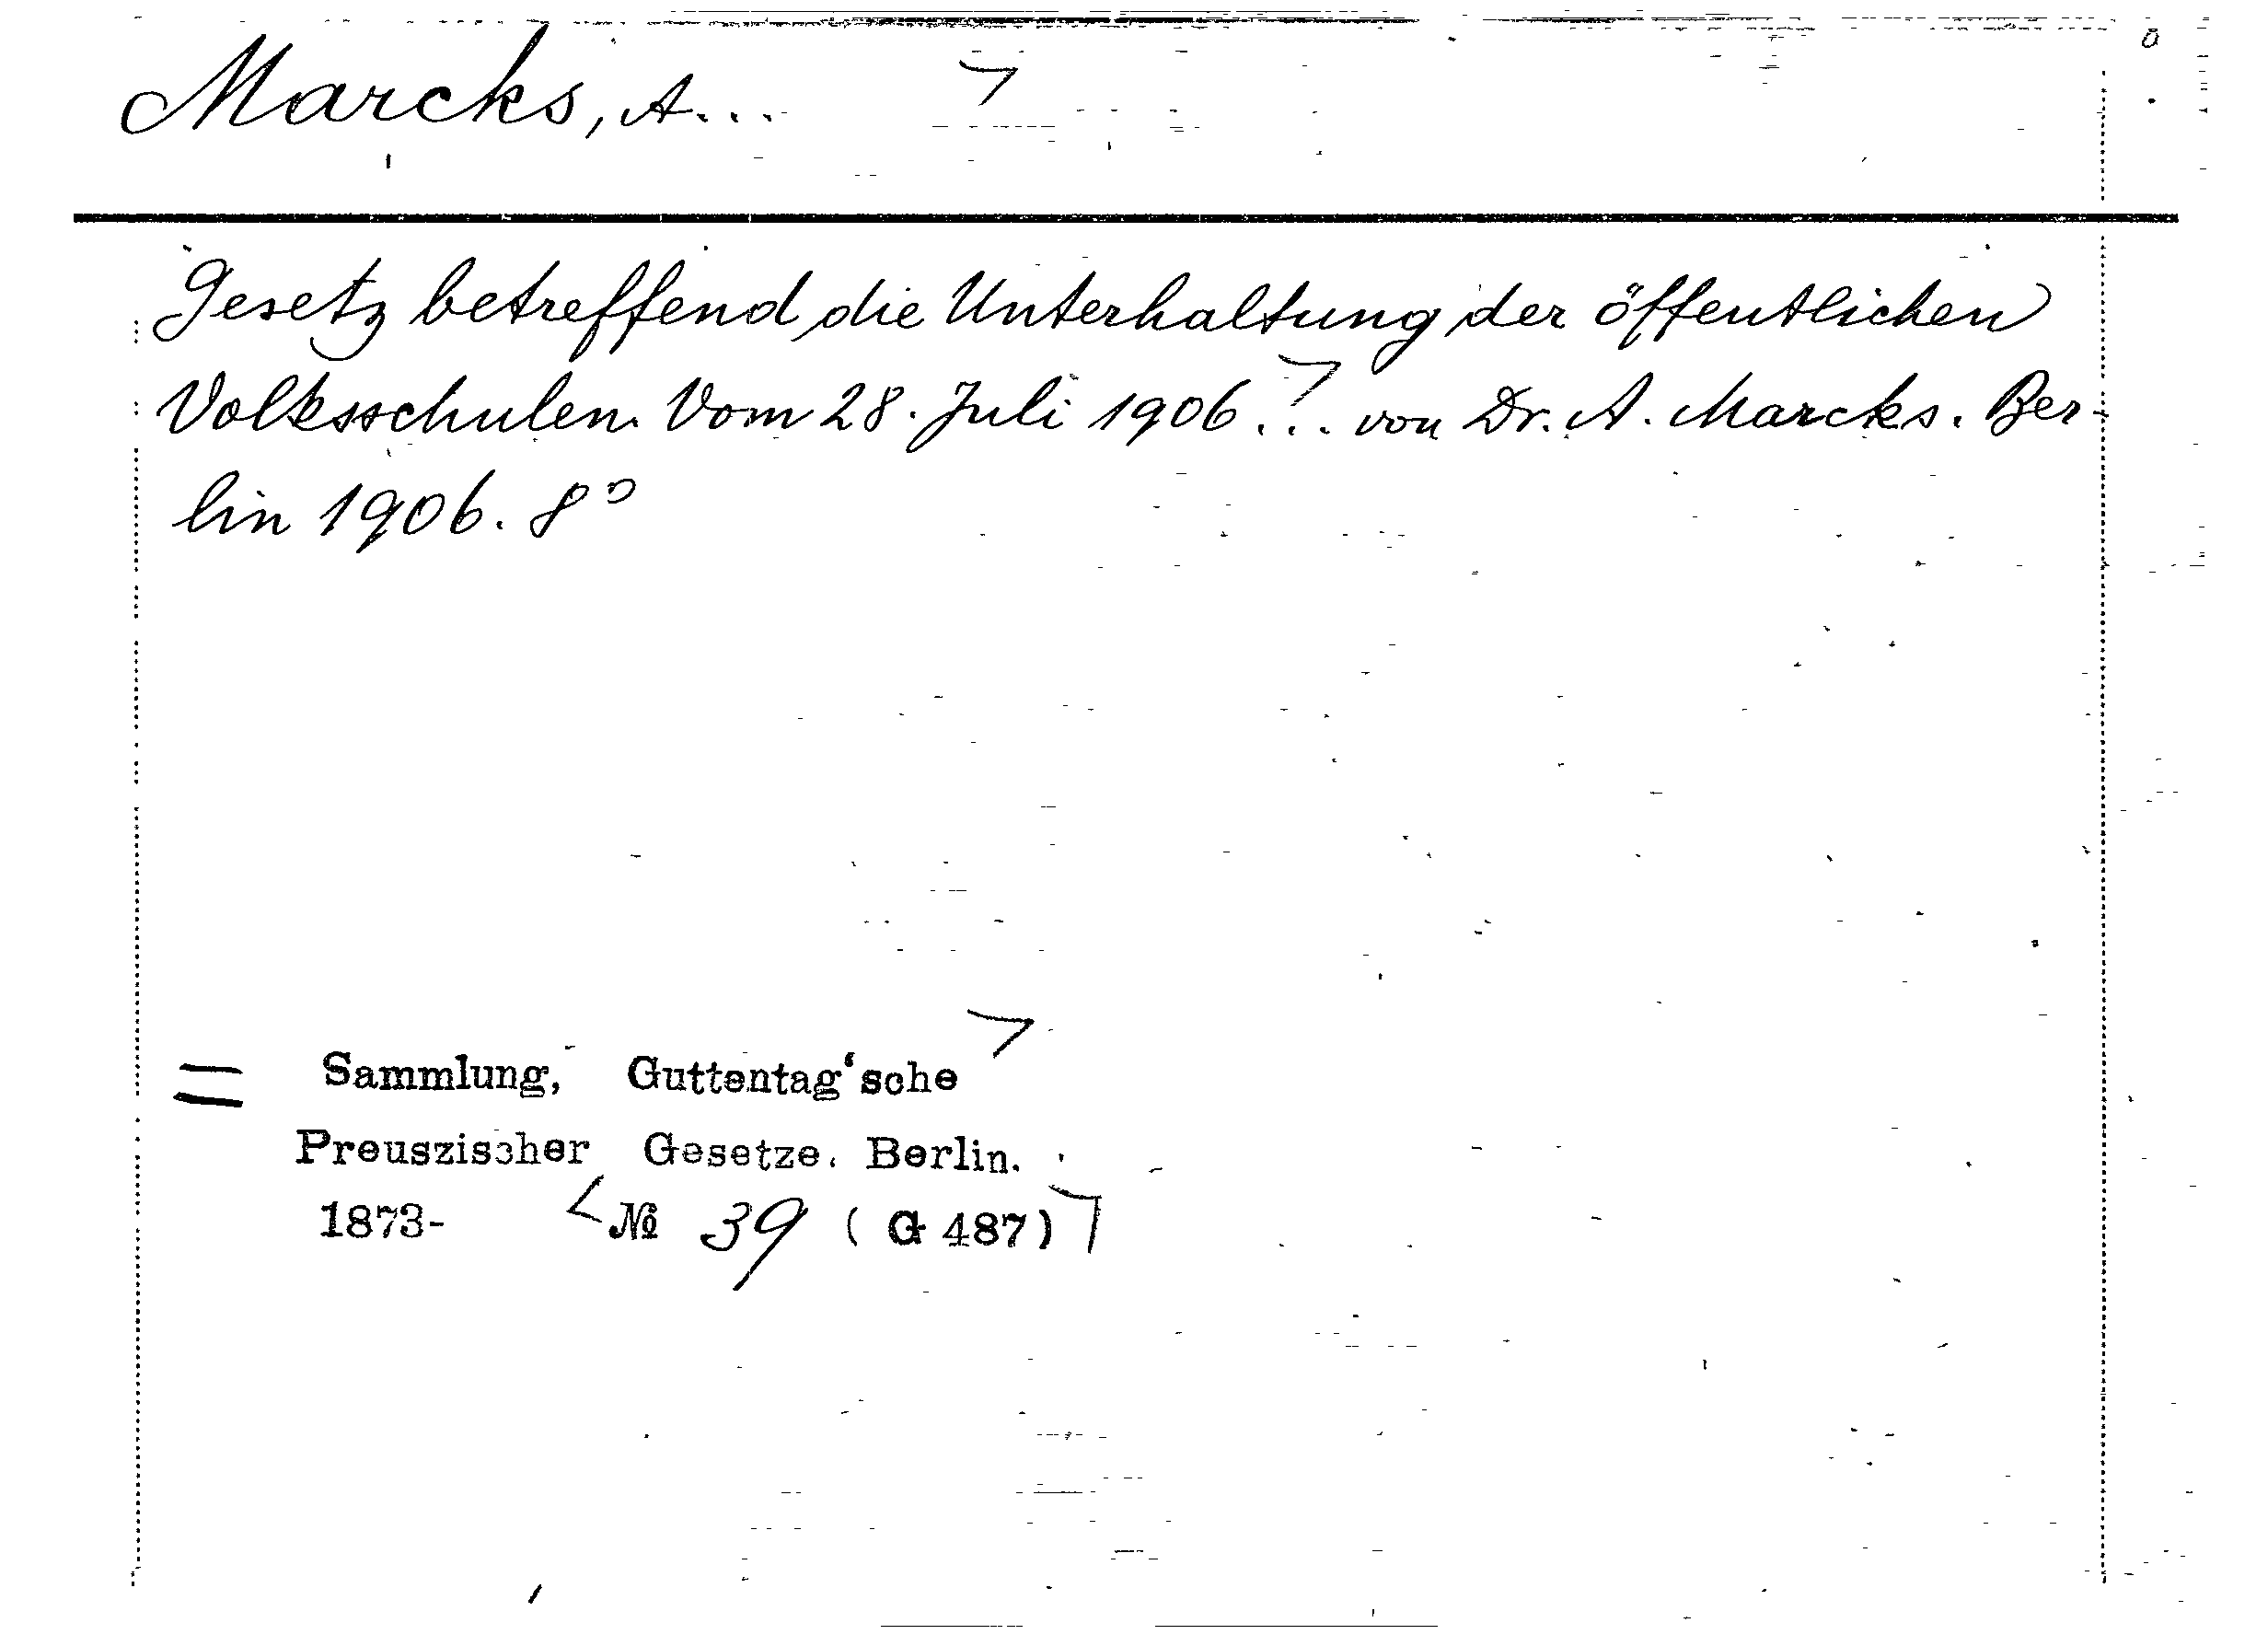 Marcks, A...
Gesetz betreffend die Unterhaltung der öffentlichen
Volksschulen. Vom 28. Juli 1906... von Dr. A. Marcks. Ber-
lin 1906. 8°
= Sammlung, Guttentag'sche
Preuszischer Gesetze. Berlin.
1873- № 39 (G 487)